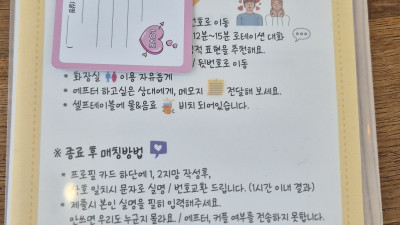 번호로 이동
12분~15분 로테이션 대화
적 표현을 주전해요.
/ 뒷번호로 이동
• 화장실 이용 자유롭게
• 에프터 하고싶은 상대에게, 메모지 전달해 보세요.
• 셀프테이블에 물&음료 비치 되어있습니다.
※ 종료 후 매칭방법
• 프로필 카드 하단에 1, 2지망 작성후,
호 일치시 문자로 실명 / 번호교환 드립니다. (1시간 이내 결과)
• 제출시 본인 실명을 필히 입력해주세요.
안쓰면 우리도 누군지 몰라요. / 에프터, 커플 여부를 전송하지 못합니다.
LOVE